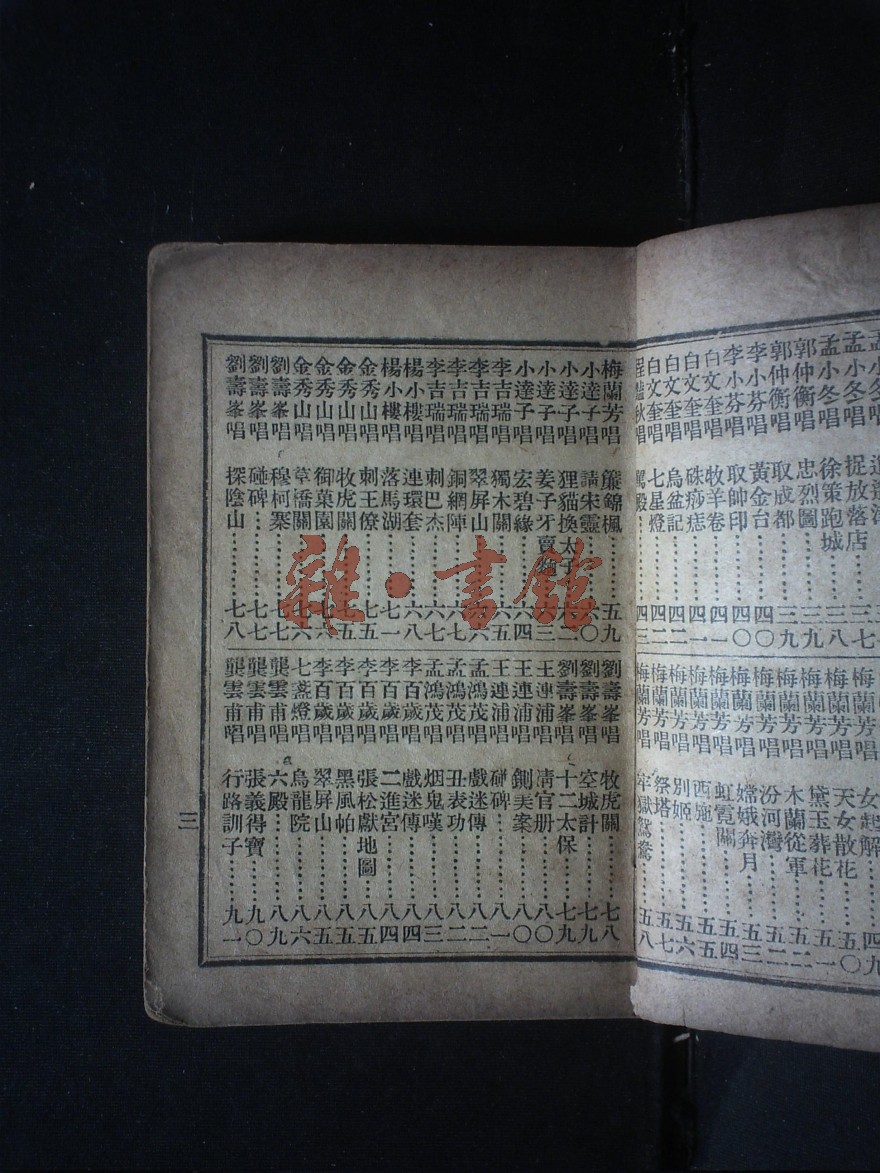 孟小冬唱 捉放落店
孟小冬唱 徐策跑城 三八
郭仲衡唱 忠烈圖 三九
郭仲衡唱 取成都 三九
李小芬唱 黃金台 四〇
李小芬唱 取帥印 四〇
白文奎唱 牧羊卷 四一
白文奎唱 硃痧痣 四一
白文奎唱 烏盆記 四二
白文奎唱 七星燈 四二
程艷秋唱 駕殿 四三
女起解 四九
梅蘭芳唱 天女散花 五〇
梅蘭芳唱 黛玉葬花 五一
梅蘭芳唱 木蘭從軍 五二
梅蘭芳唱 汾河灣 五二
梅蘭芳唱 嫦娥奔月 五三
梅蘭芳唱 虹霓關 五四
梅蘭芳唱 西施 五五
梅蘭芳唱 別姬 五六
梅蘭芳唱 祭塔 五七
梅蘭芳唱 牢獄鴛鴦 五八
梅蘭芳唱 簾錦楓 五九
小達子唱 請宋靈 六〇
小達子唱 狸貓換太子 六二
小達子唱 姜子牙賣 六三
小達子唱 宏碧緣 六四
李吉瑞唱 獨木關 六五
李吉瑞唱 翠屏山
李吉瑞唱 銅網陣 六七
李吉瑞唱 刺巴杰 六七
楊小樓唱 連環套 六八
楊小樓唱 落馬湖 七一
金秀山唱 刺王僚 七五
金秀山唱 牧虎關 七五
金秀山唱 御菓園 七六
金秀山唱 草橋關 七六
劉壽峯唱 穆柯寨 七七
劉壽峯唱 碰碑 七七
劉壽峯唱 探陰山 七八
劉壽峯唱 牧虎關 七八
劉壽峯唱 空城計 七九
劉壽峯唱 十二太保 七九
王連浦唱 清官册 八〇
王連浦唱 鍘美案 八〇
王連浦唱 碰碑 八一
孟鴻茂唱 戲迷傳 八二
孟鴻茂唱 丑表功 八二
孟鴻茂唱 烟鬼嘆 八三
李百歲唱 戲迷傳 八四
李百歲唱 二進宮 八四
李百歲唱 張松獻地圖 八五
李百歲唱 黑風帕 八五
李百歲唱 翠屏山 八五
七盞燈唱 烏龍院 八六
龔雲甫唱 六殿 八九
龔雲甫唱 張義得寶 九〇
龔雲甫唱 行路訓子 九一
三
雜·書館